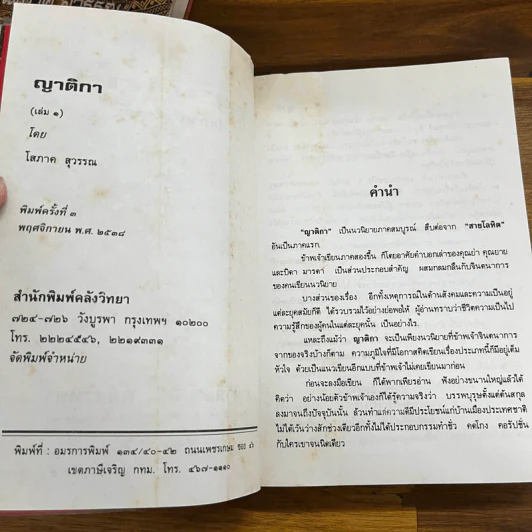 ญาติกา
(เล่ม ๑)
โดย
โสภาค สุวรรณ
พิมพ์ครั้งที่ ๓
พฤศจิกายน พ.ศ. ๒๕๓๘
สำนักพิมพ์คลังวิทยา
๗๒๔-๗๒๖ วังบูรพา กรุงเทพฯ ๑๐๒๐๐
โทร. ๒๒๒๔๕๔๖, ๒๒๑๙๓๓๑
จัดพิมพ์จำหน่าย
พิมพ์ที่ : อมรการพิมพ์ ๑๓๔/๔๐-๔๒ ถนนเพชรเกษม ซอย
เขตภาษีเจริญ กทม. โทร. ๔๖๗-๑๑๑๐
คำนำ
"ญาติกา" เป็นนวนิยายภาคสมบูรณ์ สืบต่อจาก "สายโลหิต"
อันเป็นภาคแรก.
ข้าพเจ้าเขียนภาคสองขึ้น ก็โดยอาศัยคำบอกเล่าของคุณย่า คุณยาย
และบิดา มารดา เป็นส่วนประกอบสำคัญ ผสมกลมกลืนกับจินตนาการ
ของคนเขียนนวนิยาย
บางส่วนของเรื่อง อีกทั้งเหตุการณ์ในด้านสังคมและความเป็นอยู่
แต่ละยุคสมัยก็ดี ได้รวบรวมไว้อย่างย่อพอให้ ผู้อ่านทราบว่าชีวิตความเป็นไป
ความรู้สึกของผู้คนในแต่ละยุคนั้น เป็นอย่างไร.
แหละถึงแม้ว่า ญาติกา จะเป็นเพียงนวนิยายที่ข้าพเจ้าจินตนาการ
จากของจริงบ้างก็ตาม ความภูมิใจที่มีโอกาสคิดเขียนเรื่องประเภทนี้ก็มีอยู่เต็ม
หัวใจ ด้วยเป็นแนวเขียนอีกแบบที่ข้าพเจ้าไม่เคยเขียนมาก่อน
ก่อนจะลงมือเขียน ก็ได้พากเพียรอ่าน ฟังอย่างขนานใหญ่แล้วได้
คิดว่า อย่างน้อยตัวข้าพเจ้าเองก็ได้รู้ความจริงว่า บรรพบุรุษตั้งแต่ต้นสกุล
ลงมาจนถึงปัจจุบันนั้น ล้วนทำแต่ความดีมีประโยชน์แก่บ้านเมืองประเทศชาติ
ไม่ได้เว้นว่างสักช่วงเดียวอีกทั้งไม่ได้ประกอบกรรมทำชั่ว คดโกง คอรัปชั่น
กับใครเขาจนนิดเดียว